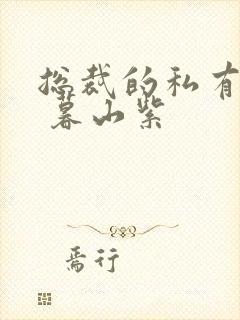 总裁的私有
暮山紫
焉行